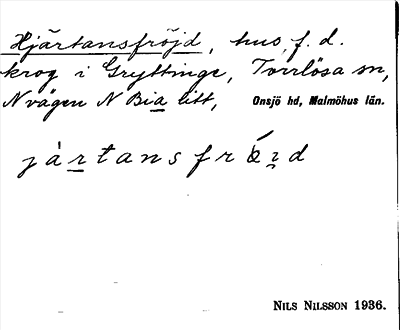 Hjärtansfröjd, hus, f. d.
krog i Gryttinge, Torrlösa sn,
N vägen N Bia litt, Onsjö hd, Malmöhus län.
jàr̲tansfrǿi̲d
Nils Nilsson 1936.